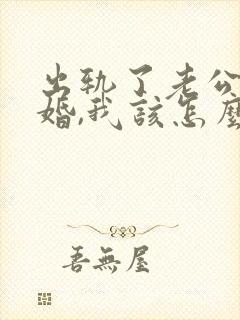 出轨了老公
婚,我该怎麼
吾無屋